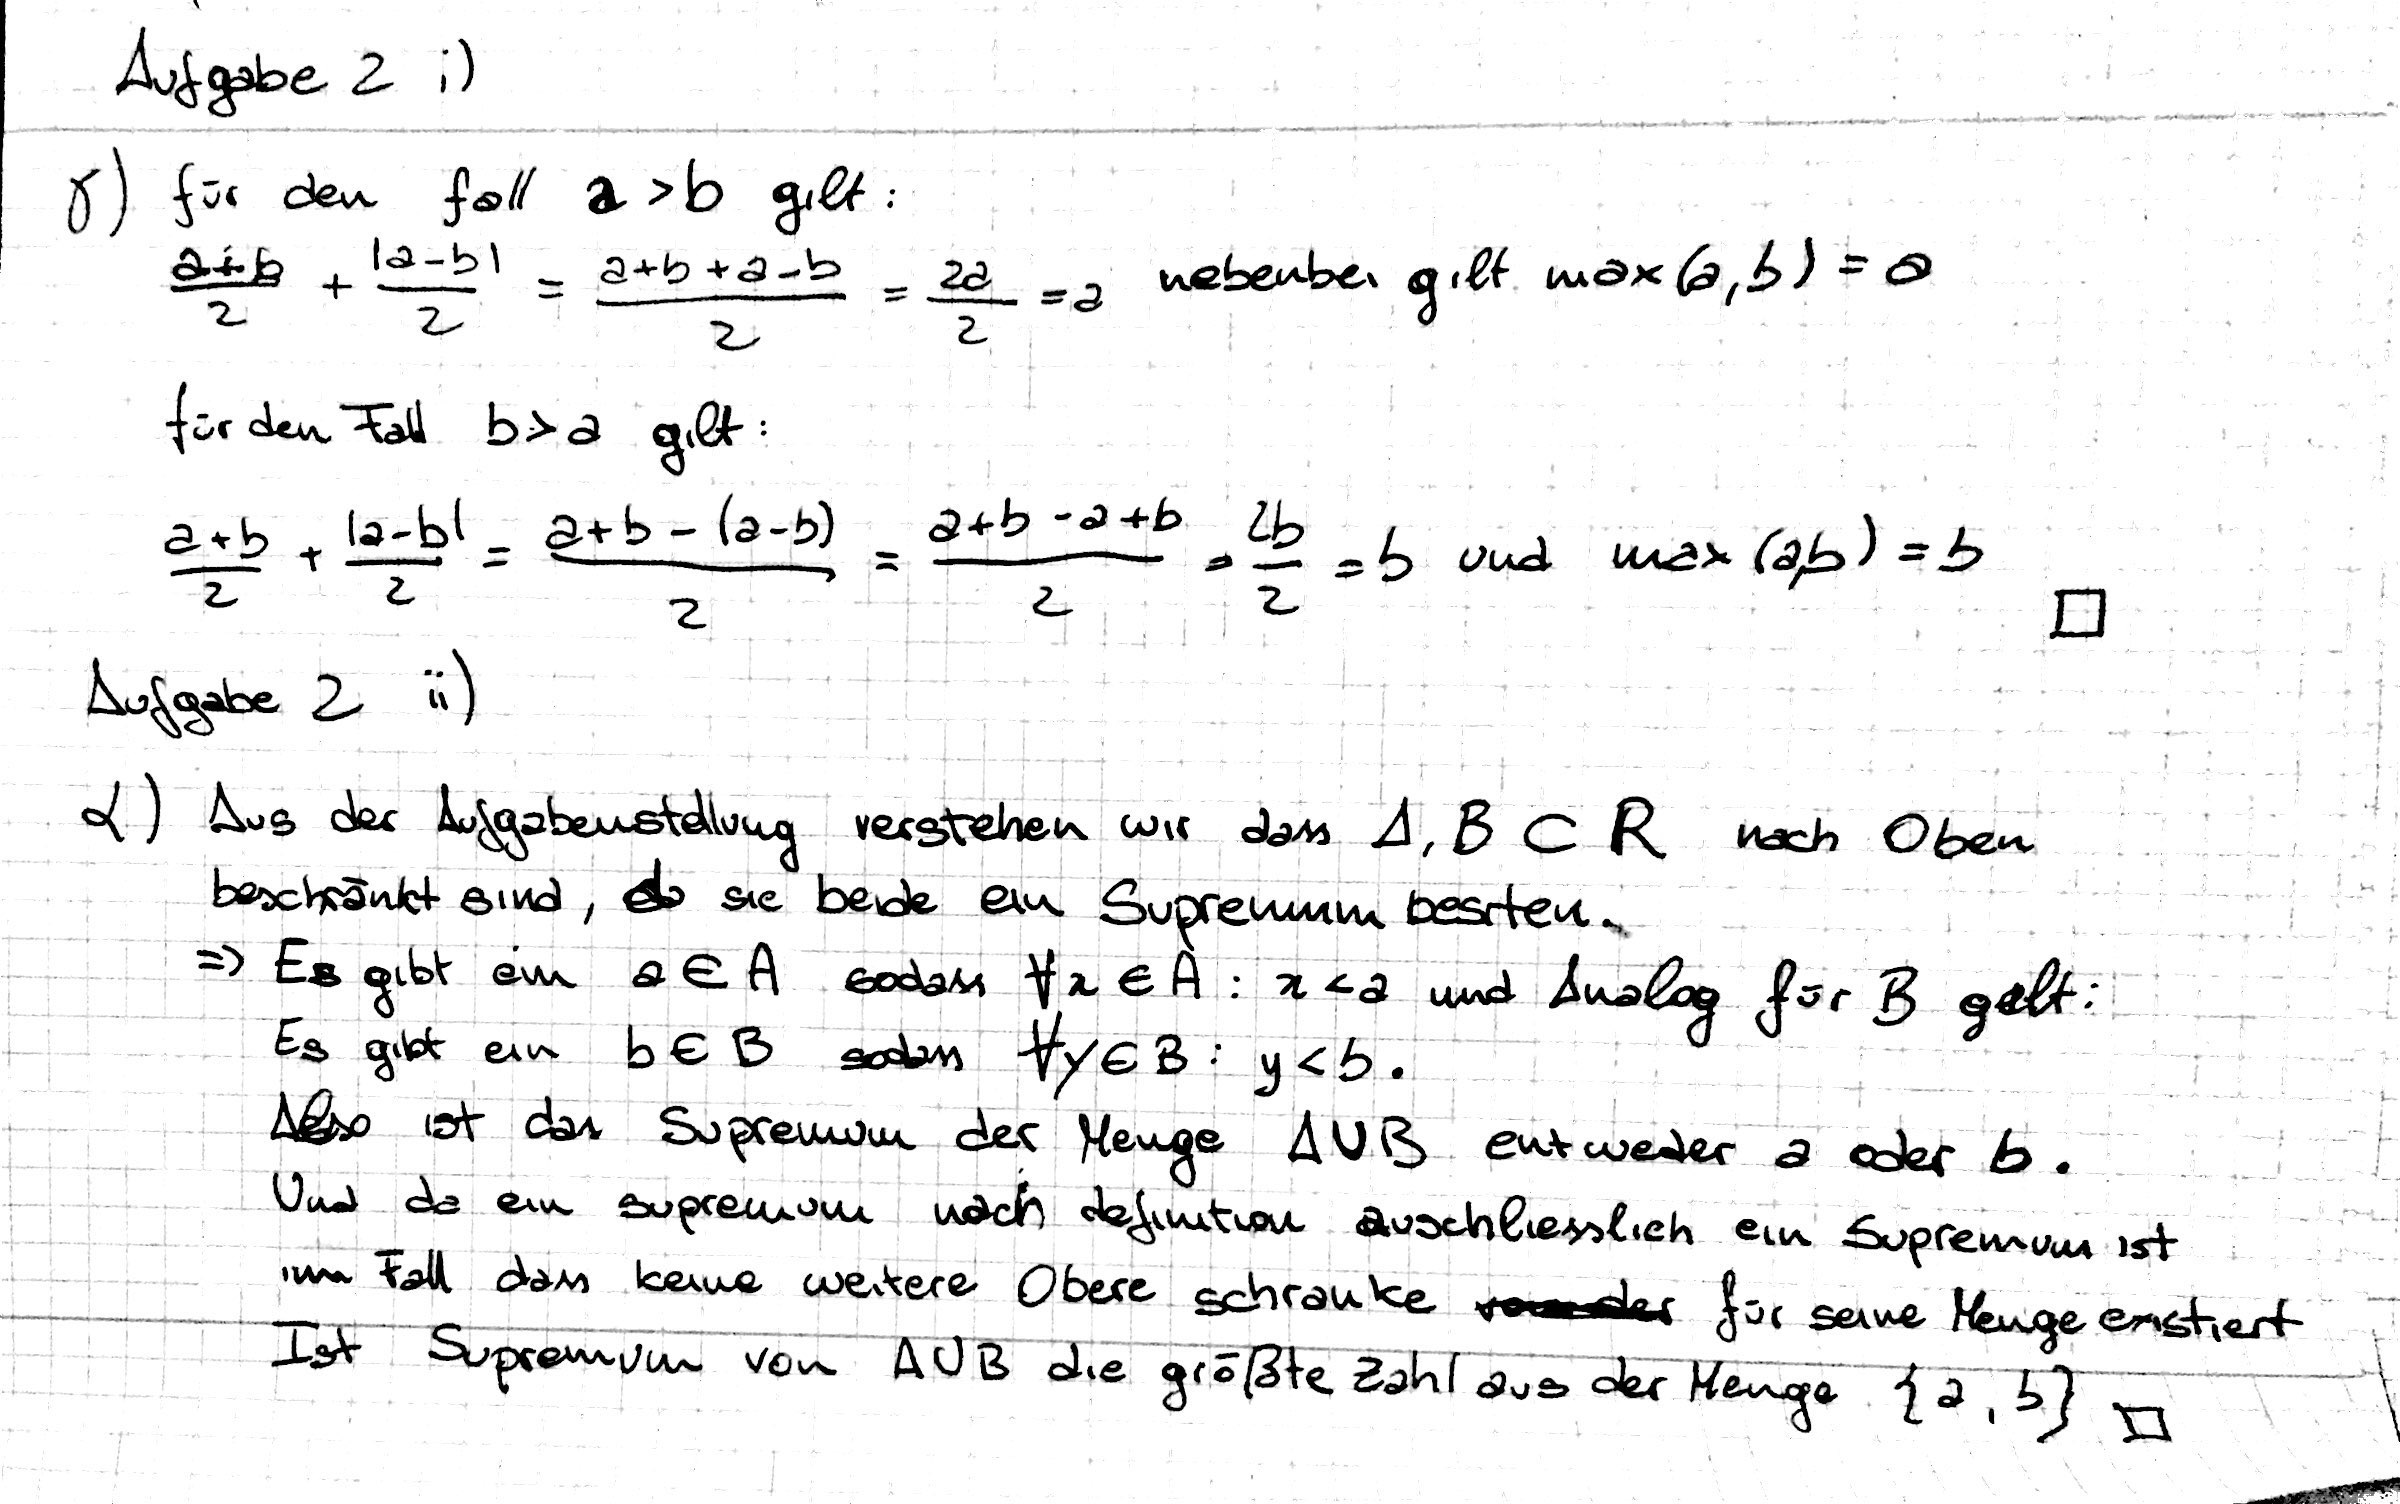 Aufgabe 2 i)
γ) für den fall a > b gilt:
a+b/2 + |a-b|/2 = a+b+a-b/2 = 2a/2 = a nebenbei gilt max(a,b) = a
für den Fall b > a gilt:
a+b/2 + |a-b|/2 = a+b-(a-b)/2 = a+b-a+b/2 = 2b/2 = b und max(a,b) = b □
Aufgabe 2 ii)
α) Aus der Aufgabenstellung verstehen wir dass A, B ⊂ R nach Oben
beschränkt sind, da sie beide ein Supremum besiten.
=> Es gibt ein a ∈ A sodass ∀x ∈ A : x < a und Analog für B gilt:
Es gibt ein b ∈ B sodass ∀y ∈ B : y < b.
Also ist das Supremum der Menge A∪B entweder a oder b.
Und da ein supremum nach definition auschliesslich ein Supremum ist
im Fall dass keine weitere Obere schranke für seine Menge existiert
Ist Supremum von A∪B die größte Zahl aus der Menge {a, b} □